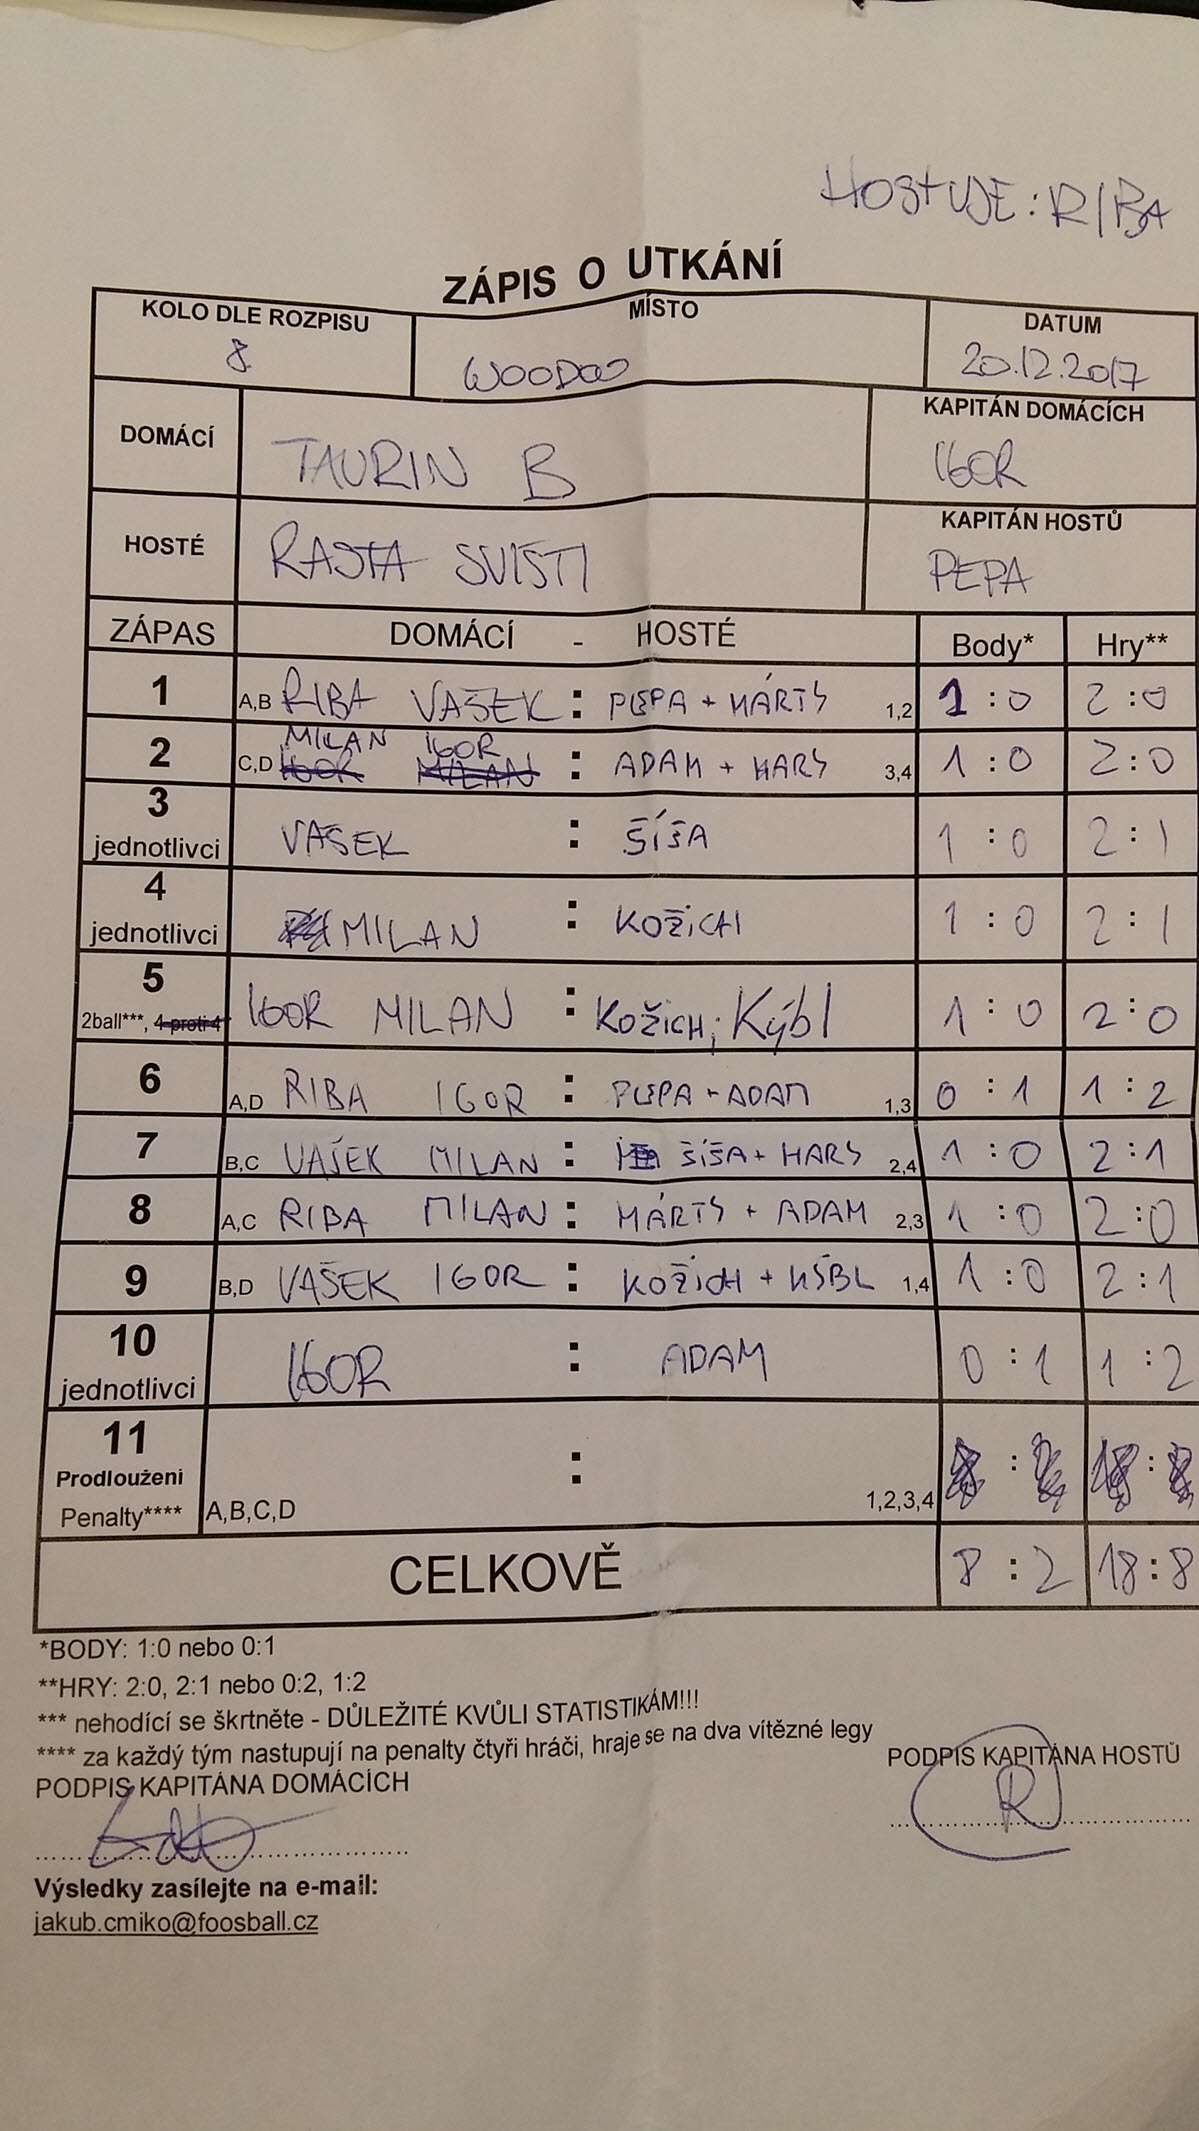 HOSTUJE: RIBA
ZÁPIS O UTKÁNÍ
KOLO DLE ROZPISU MÍSTO DATUM
8. WOODOO 20.12.2017
DOMÁCÍ TAURIN B KAPITÁN DOMÁCÍCH IGOR
HOSTÉ RASTA SVIŠTI KAPITÁN HOSTŮ PEPA
ZÁPAS DOMÁCÍ - HOSTÉ Body* Hry**
1 A,B RIBA VAŠEK : PEPA + MÁRTY 1,2 1 : 0 2 : 0
2 C,D MILAN IGOR : ADAM + HARY 3,4 1 : 0 2 : 0
3 jednotlivci VAŠEK : ŠÍŠA 1 : 0 2 : 1
4 jednotlivci MILAN : KOŽICH 1 : 0 2 : 1
5 2ball***, 4 proti 4 IGOR MILAN : KOŽICH; Kýbl 1 : 0 2 : 0
6 A,D RIBA IGOR : PEPA + ADAM 1,3 0 : 1 1 : 2
7 B,C VAŠEK MILAN : ŠÍŠA + HARY 2,4 1 : 0 2 : 1
8 A,C RIBA MILAN : MÁRTY + ADAM 2,3 1 : 0 2 : 0
9 B,D VAŠEK IGOR : KOŽICH + KÝBL 1,4 1 : 0 2 : 1
10 jednotlivci IGOR : ADAM 0 : 1 1 : 2
11 Prodloužení Penalty**** A,B,C,D : 1,2,3,4 : :
CELKOVĚ 8 : 2 18 : 8
*BODY: 1:0 nebo 0:1
**HRY: 2:0, 2:1 nebo 0:2, 1:2
*** nehodící se škrtněte - DŮLEŽITÉ KVŮLI STATISTIKÁM!!!
**** za každý tým nastupují na penalty čtyři hráči, hraje se na dva vítězné legy
PODPIS KAPITÁNA DOMÁCÍCH PODPIS KAPITÁNA HOSTŮ
Výsledky zasílejte na e-mail:
jakub.cmiko@foosball.cz